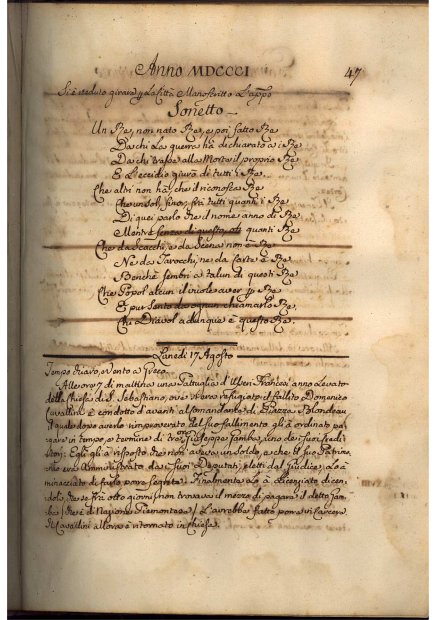 Anno MDCCCI
47
Si è veduto girare p La Città Manoscritto L'app.o
Sonetto
Un Re, non nato Re, e poi fatto Re
Da chi La guerra hà dichiarato a i Re
Da chi trasse alla Morte il proprio Re
E L'eccidio giurò di tutti i Re.
Che altri non hà, che il riconosca Re
Che un sol, sinor, frà tutti quanti i Re
Di quei parlo che il nome anno di Re
Mentre senza di questo, altri quanti Re
Che da Scacchi, e da Scena non è Re
Ne da Tarocchi, ne da Carte è Re
Benchè sembri a talun di questi Re
Che Popol alcun il vuole aver p Re
E pur sento da ognun chiamarlo Re,
Chi Diavol adunque è questo Re.
Lunedì 17 Agosto
Tempo chiaro, e Vento a Greco
Alle ore 7 di mattina una Pattuglia d'Usseri Francesi anno Levato
dalla Chiesa di S. Sebastiano, ove si era refugiato il fallito Domenico
Cavallini, è condotto d'avanti al Comandante di Piazza Blondeau
il quale dopo averlo improverato del suo fallimento, gli à ordinato pa-
gare in tempo, e termine di tre Giuseppe Jamba, uno dei suoi Credi-
tori; Egli gli à risposto che non aveva un soldo, e che il suo Patrimo-
nio era Amministrato da i suoi Deputati, eletti dal Giudice, Lo à
minacciato di farlo porre Segreto: Finalmente Lo à Licenziato dicen-
dole, che se frà otto giorni non trovava il mezzo di pagare il detto Jam-
ba (che è di Nazione Piemontese) L'avrebbe fatto porre in Carcere.
Il Cavallini allora è ritornato in Chiesa.